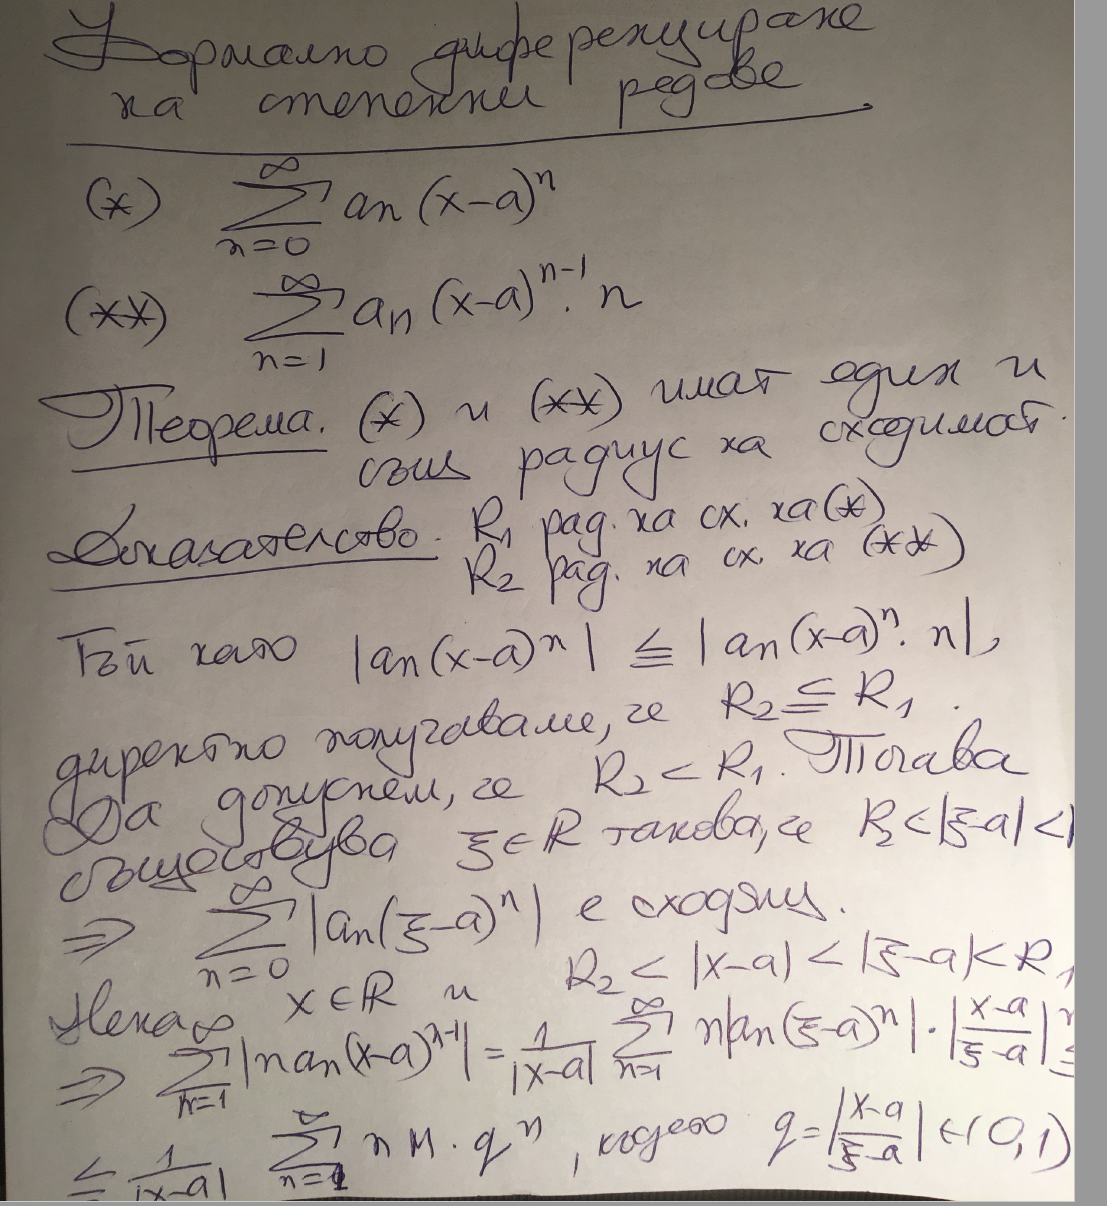 Формално диференциране
на степенни редове
(*) ∑_{n=0}^{∞} a_n (x-a)^n
(**) ∑_{n=1}^{∞} a_n (x-a)^{n-1} . n
Теорема. (*) и (**) имат един и
същ радиус на сходимост.
Доказателство. R_1 рад. на сх. на (*)
R_2 рад. на сх. на (**)
Тъй като |a_n (x-a)^n| ≦ |a_n (x-a)^n . n|,
директно получаваме, че R_2 ≦ R_1 .
Да допуснем, че R_2 < R_1. Тогава
съществува ξ ∈ ℝ такова, че R_2 < |ξ-a| <
⇒ ∑_{n=0}^{∞} |a_n (ξ-a)^n| е сходящ.
Нека x ∈ ℝ и R_2 < |x-a| < |ξ-a| < R_1
⇒ ∑_{n=1}^{∞} |n a_n (x-a)^{n-1}| = \frac{1}{|x-a|} ∑_{n=1}^{∞} n|a_n (ξ-a)^n| . |\frac{x-a}{ξ-a}|^n ≦
≦ \frac{1}{|x-a|} ∑_{n=1}^{∞} n M . q^n , където q = |\frac{x-a}{ξ-a}| ∈ (0,1)